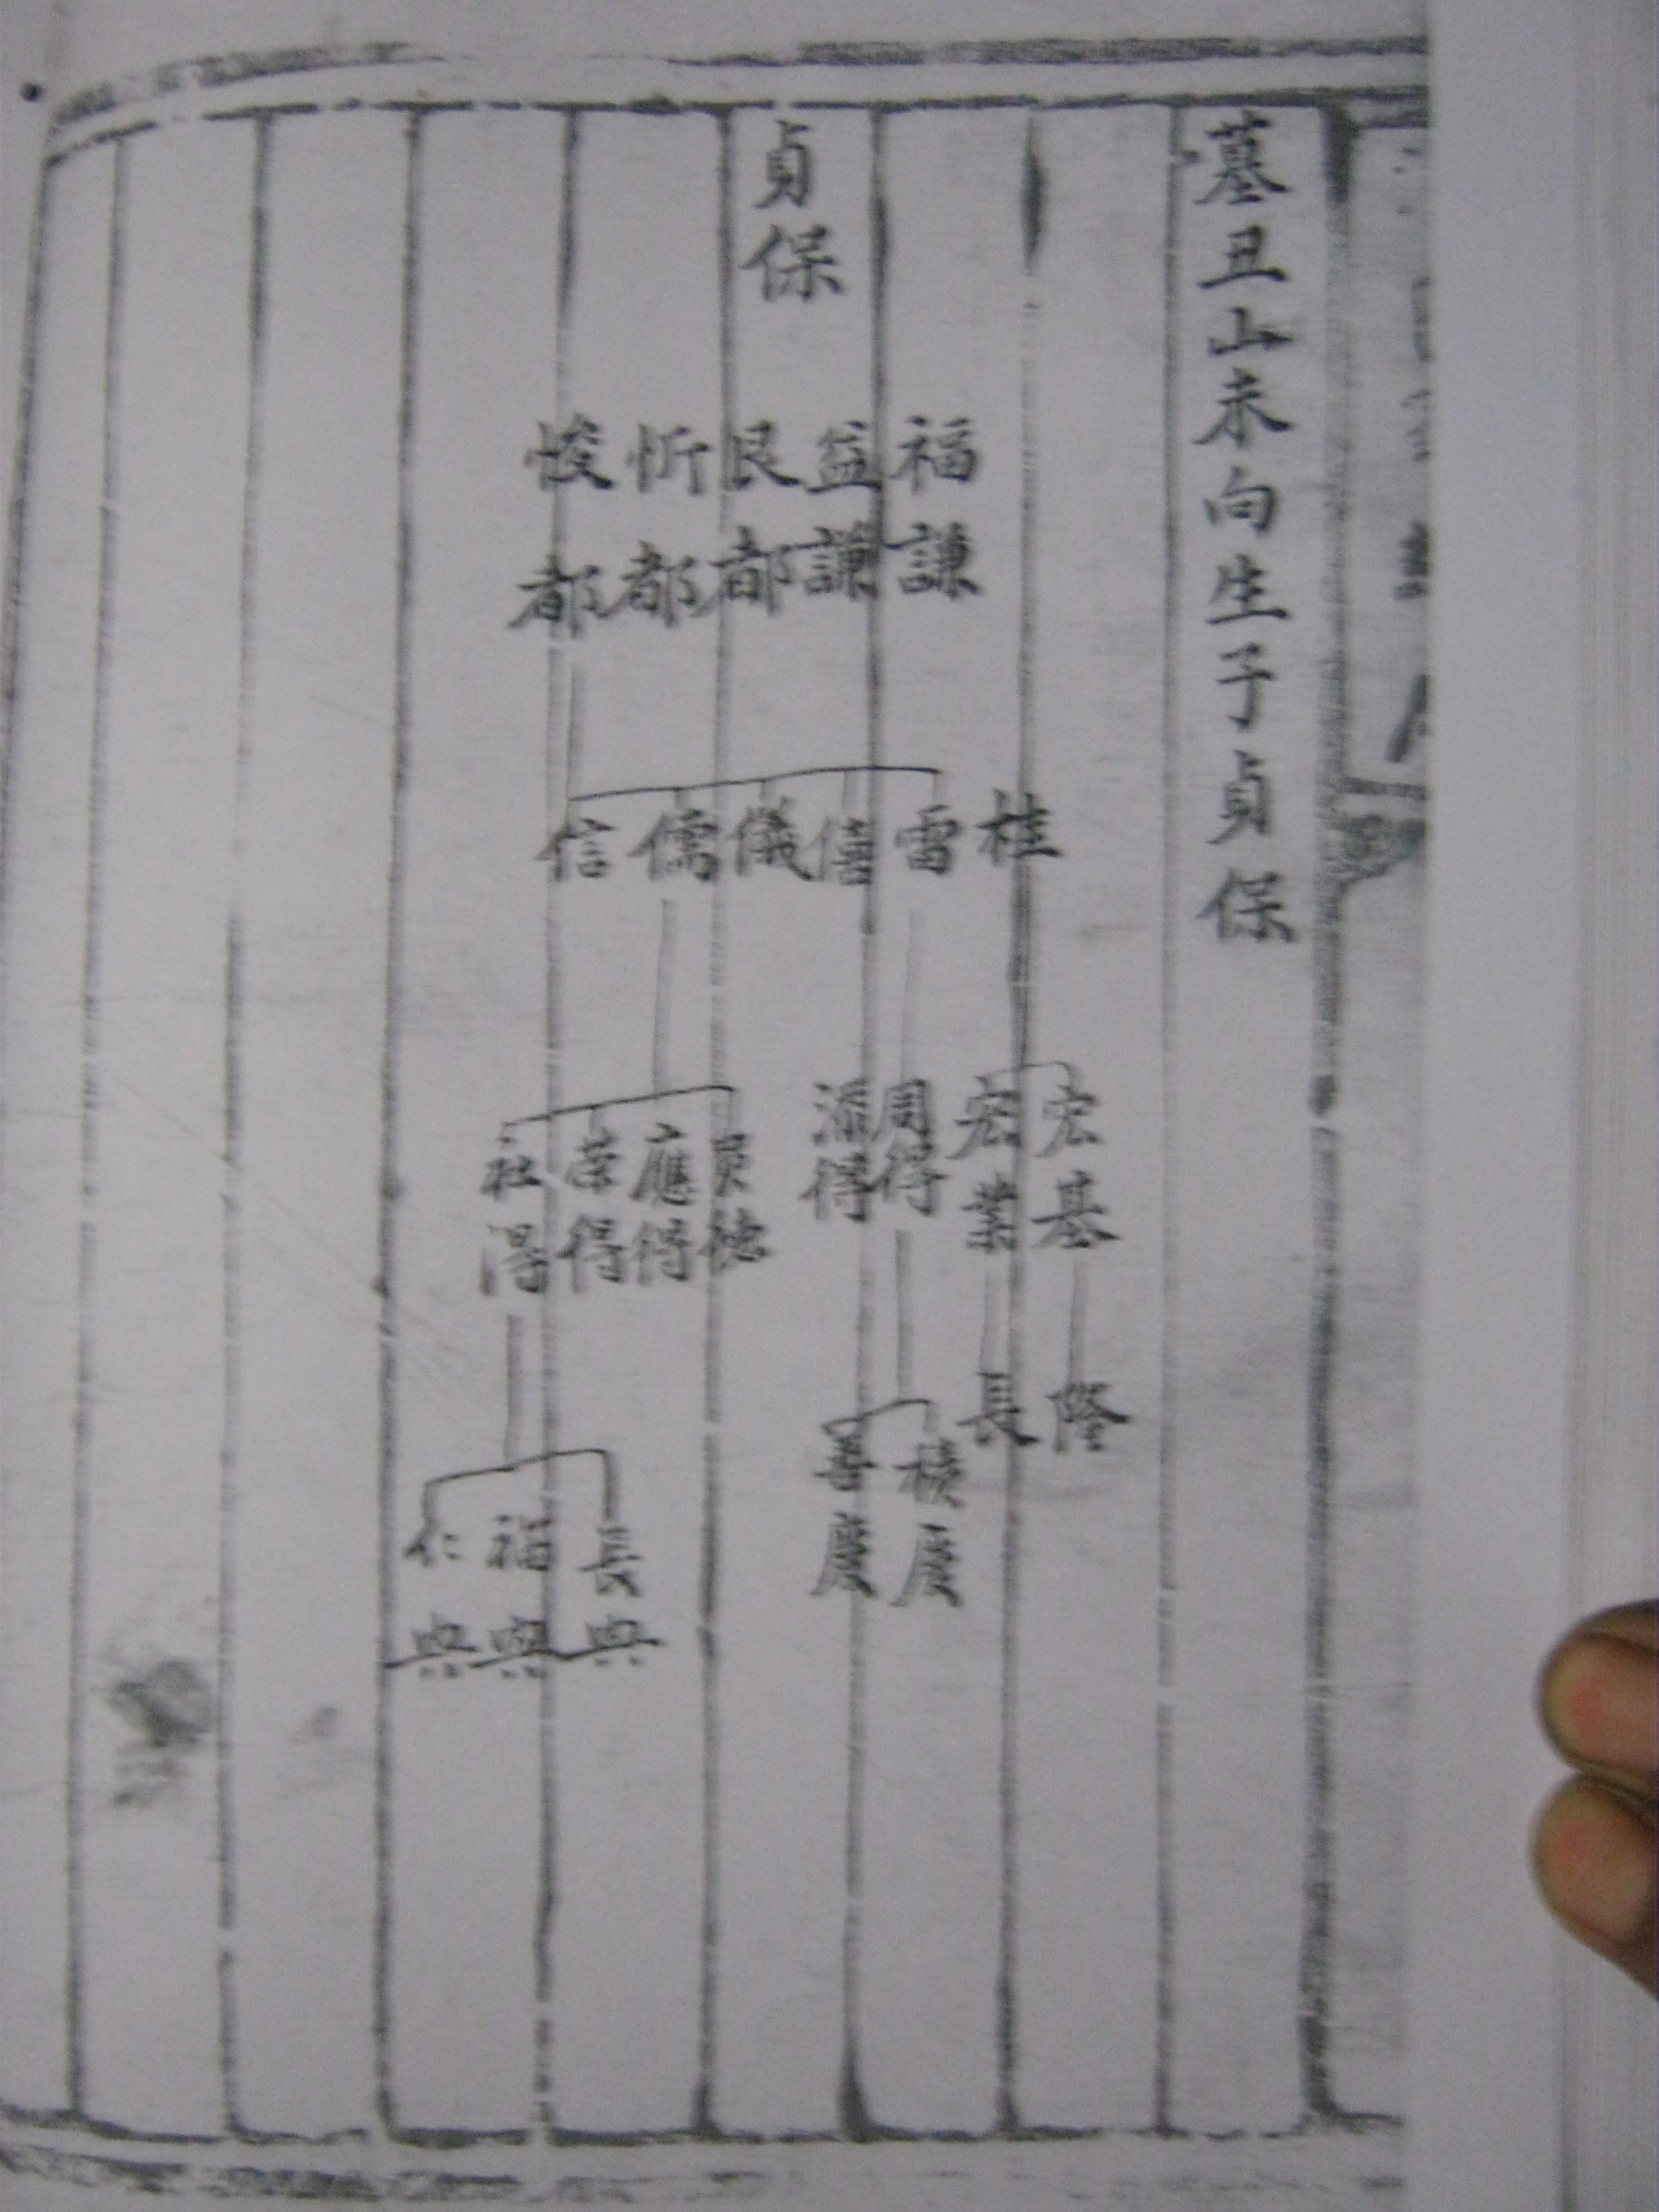 墓丑山未向生子貞保
貞保
福謙
益謙
艮都
忻都
悛都
桂
雷
僖
儀
儒
信
宏基
宏業
周得
添得
德
應得
榮得
社得
隆
長
積慶
善慶
長興
福興
仁興